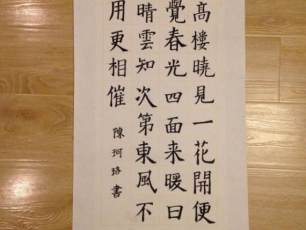 高樓曉見一花開便
覺春光四面来暖日
晴雲知次第東風不
用更相催
陳珂珞書